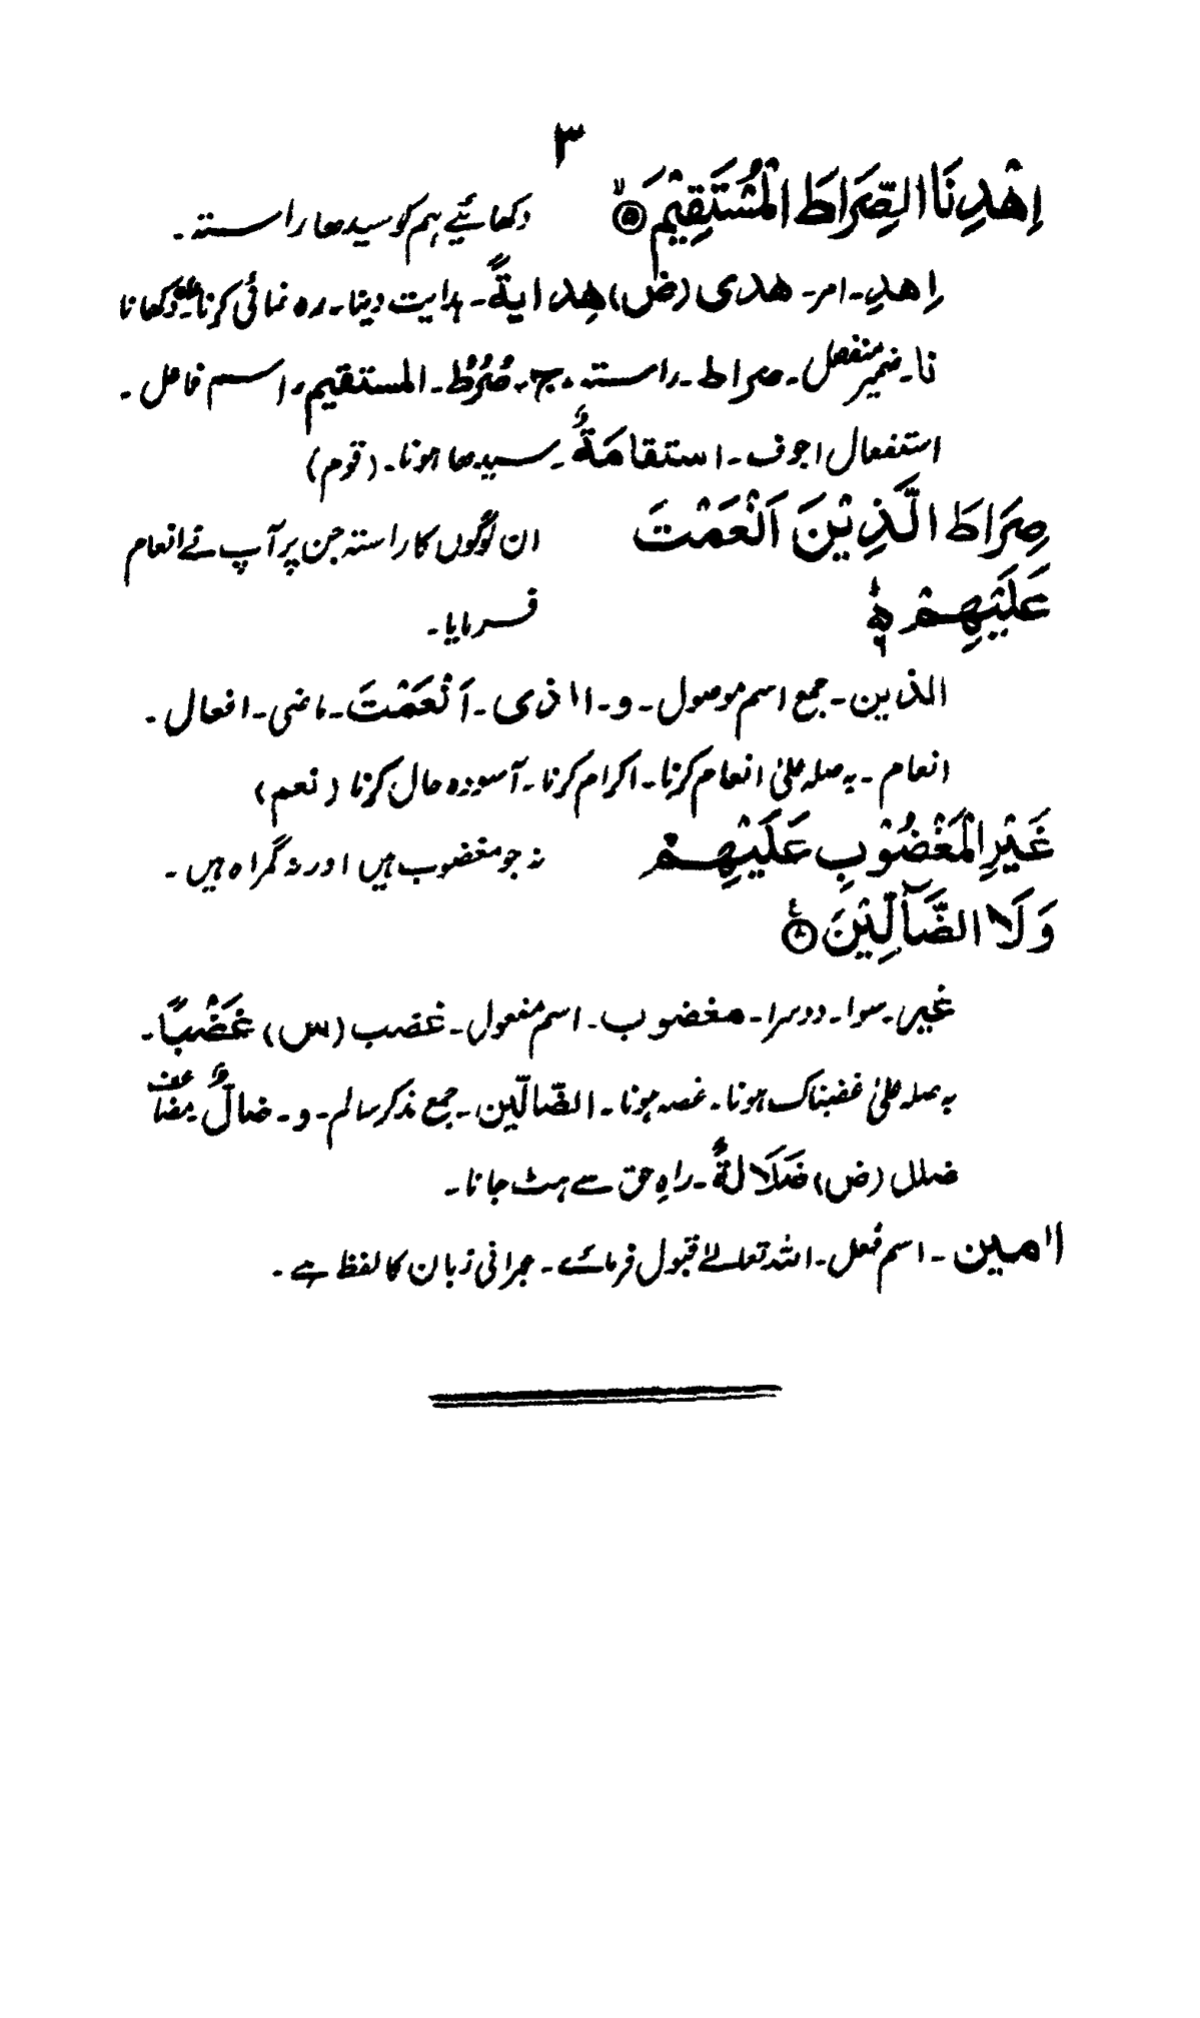 ۳
اِهْدِنَا الصِّرَاطَ الْمُسْتَقِيْمَ ۙ﴿۵﴾ دکھائیے ہم کو سیدھا راستہ۔
اِهدِ۔ امر۔ هدی (ض) هِدایةً۔ ہدایت دینا۔ رہ نمائی کرنا۔ دکھانا
نا۔ ضمیر منفصل۔ صراط۔ راستہ۔ ج۔ صُرُطٌ۔ المستقیم۔ اسم فاعل۔
استفعال اجوف۔ استقامَةٌ۔ سیدھا ہونا۔ (قوم)
صِرَاطَ الَّذِيْنَ اَنْعَمْتَ ان لوگوں کا راستہ جن پر آپ نے انعام
عَلَيْهِمْ ۙ۬ۦ فرمایا۔
الذین۔ جمع اسم موصول۔ و۔ الذی۔ اَنْعَمْتَ۔ ماضی۔ افعال۔
انعام۔ بہ صلہ علیٰ انعام کرنا۔ اکرام کرنا۔ آسودہ حال کرنا (نعم)
غَيْرِ الْمَغْضُوْبِ عَلَيْهِمْ نہ جو مغضوب ہیں اور نہ گمراہ ہیں۔
وَلَا الضَّآلِّيْنَ ﴿۶﴾
غیر۔ سوا۔ دوسرا۔ مغضوب۔ اسم مفعول۔ غضب (س) غَضْبًا۔
بہ صلہ علیٰ غضبناک ہونا۔ غصہ ہونا۔ الضّالّین۔ جمع مذکر سالم۔ و۔ ضالٌّ مضاعف
ضلل (ض) ضَلَالةٌ۔ راہِ حق سے ہٹ جانا۔
اٰمین۔ اسم فعل۔ اللہ تعالےٰ قبول فرمائے۔ عبرانی زبان کا لفظ ہے۔